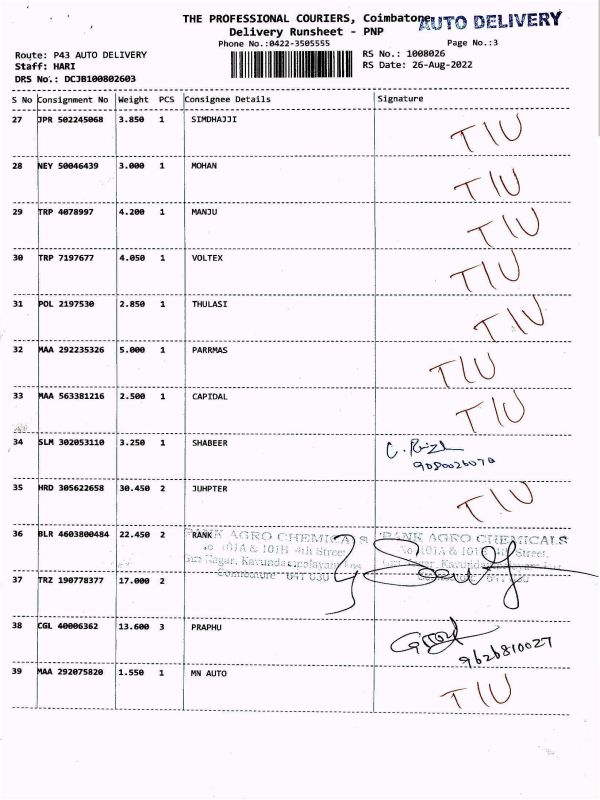 THE PROFESSIONAL COURIERS, Coimbatore
AUTO DELIVERY
Delivery Runsheet - PNP
Phone No.:0422-3505555 Page No.:3
Route: P43 AUTO DELIVERY RS No.: 1008026
Staff: HARI RS Date: 26-Aug-2022
DRS No.: DCJB100802603
S No Consignment No Weight PCS Consignee Details Signature
27 JPR 502245068 3.850 1 SIMDHAJJI TIU
28 NEY 50046439 3.000 1 MOHAN TIU
29 TRP 4078997 4.200 1 MANJU TIU
30 TRP 7197677 4.050 1 VOLTEX TIU
31 POL 2197530 2.850 1 THULASI TIU
32 MAA 292235326 5.000 1 PARRMAS TIU
33 MAA 563381216 2.500 1 CAPIDAL TIU
34 SLM 302053110 3.250 1 SHABEER
9080026070
35 HRD 305622658 30.450 2 JUHPTER TIU
36 BLR 4603800484 22.450 2 RANK
RANK AGRO CHEMICALS RANK AGRO CHEMICALS
No 101A & 101B 4th Street, No 101A & 101B 4th Street,
37 TRZ 190778377 17.000 2
38 CGL 40006362 13.600 3 PRAPHU
9626810027
39 MAA 292075820 1.550 1 MN AUTO TIU